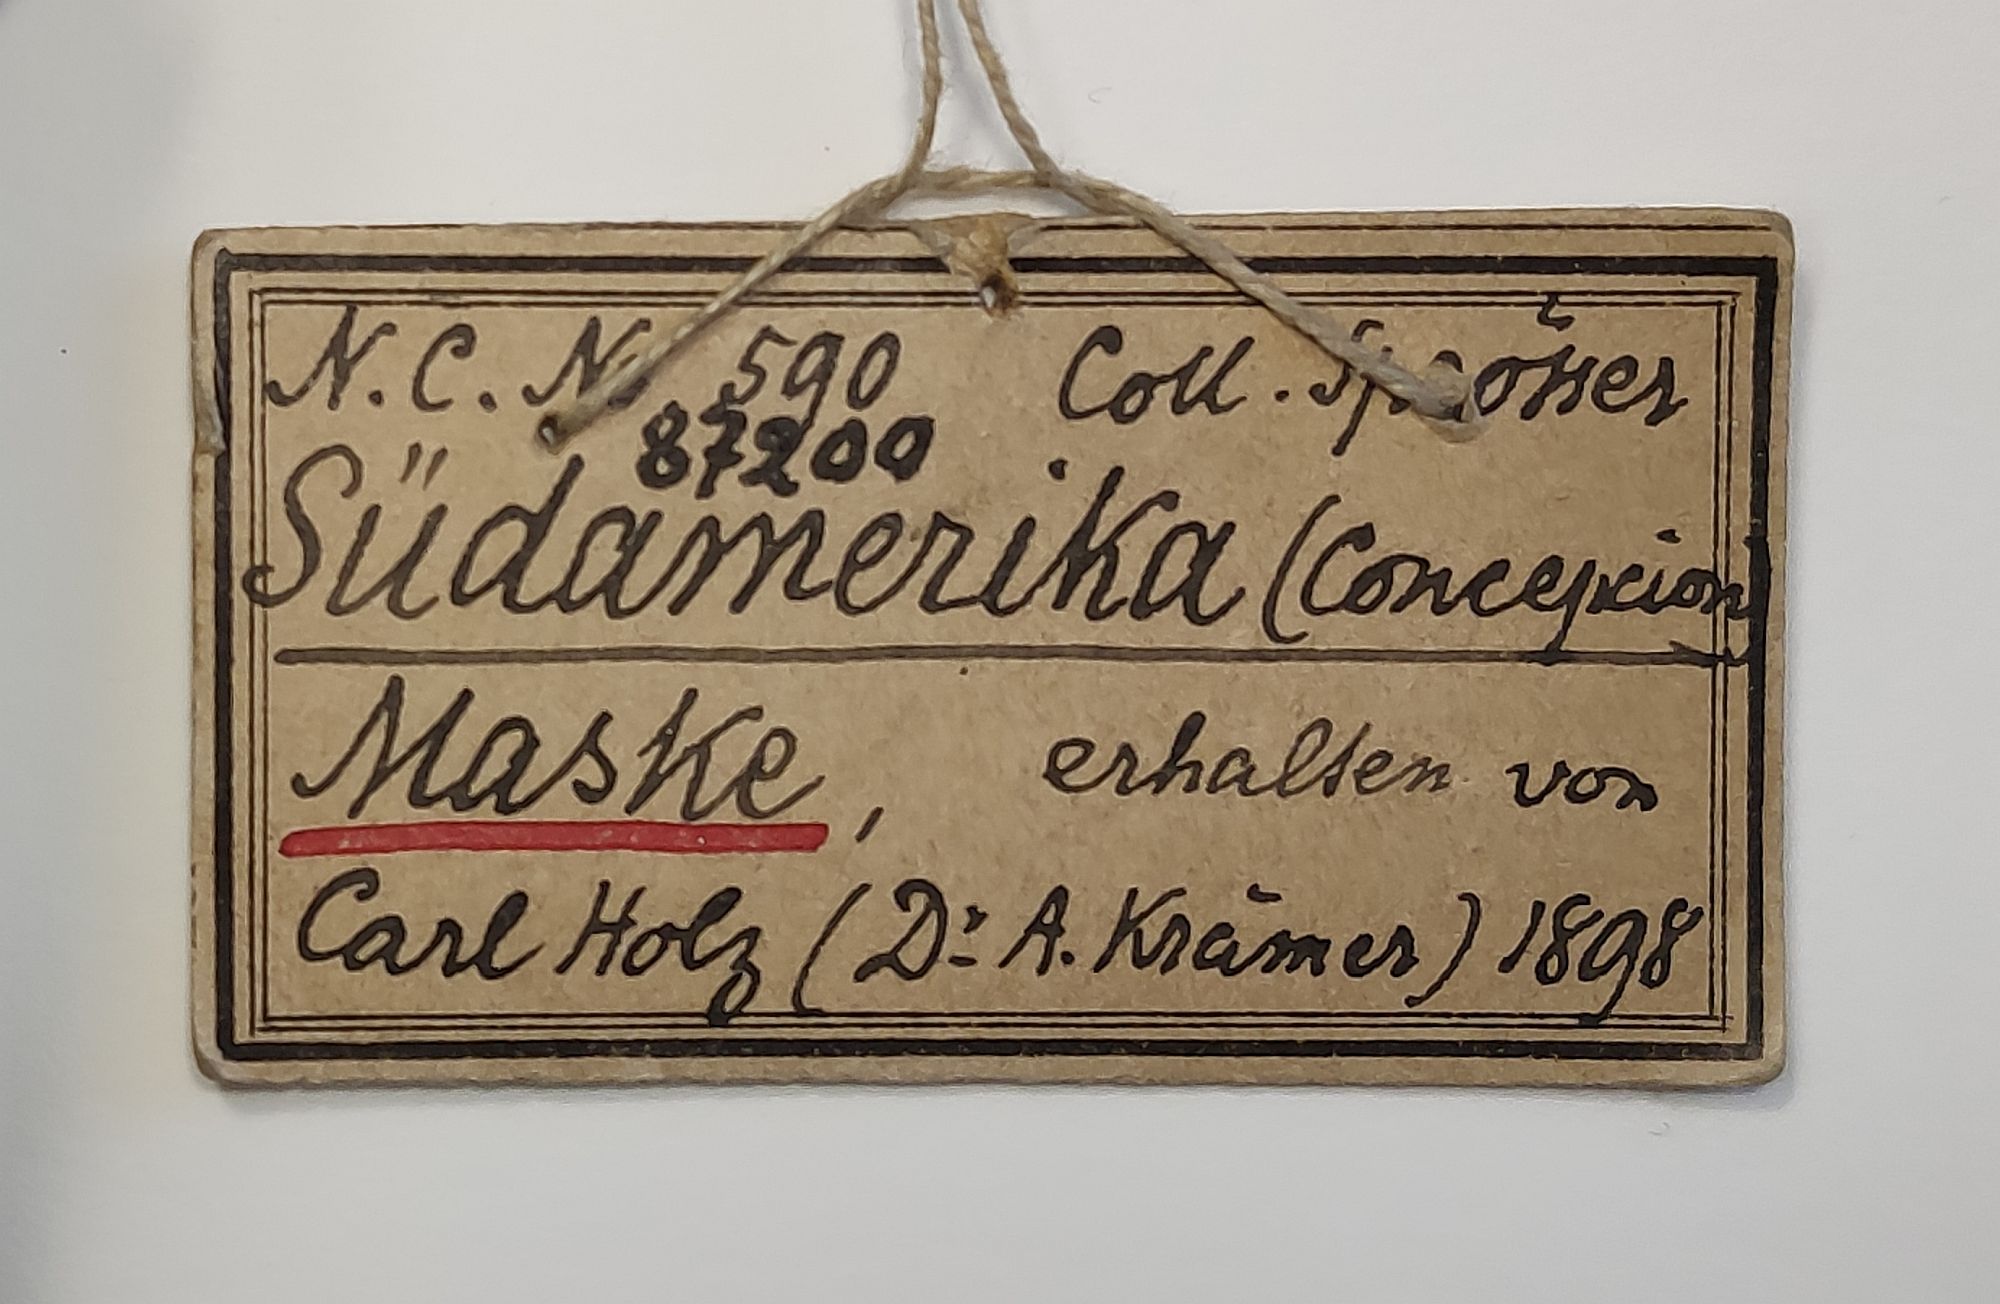 N. C. N. 590 Coll.
87200
Südamerika (Concepcion)
Maske, erhalten von
Carl Holz (Dr. A. Krämer) 1898